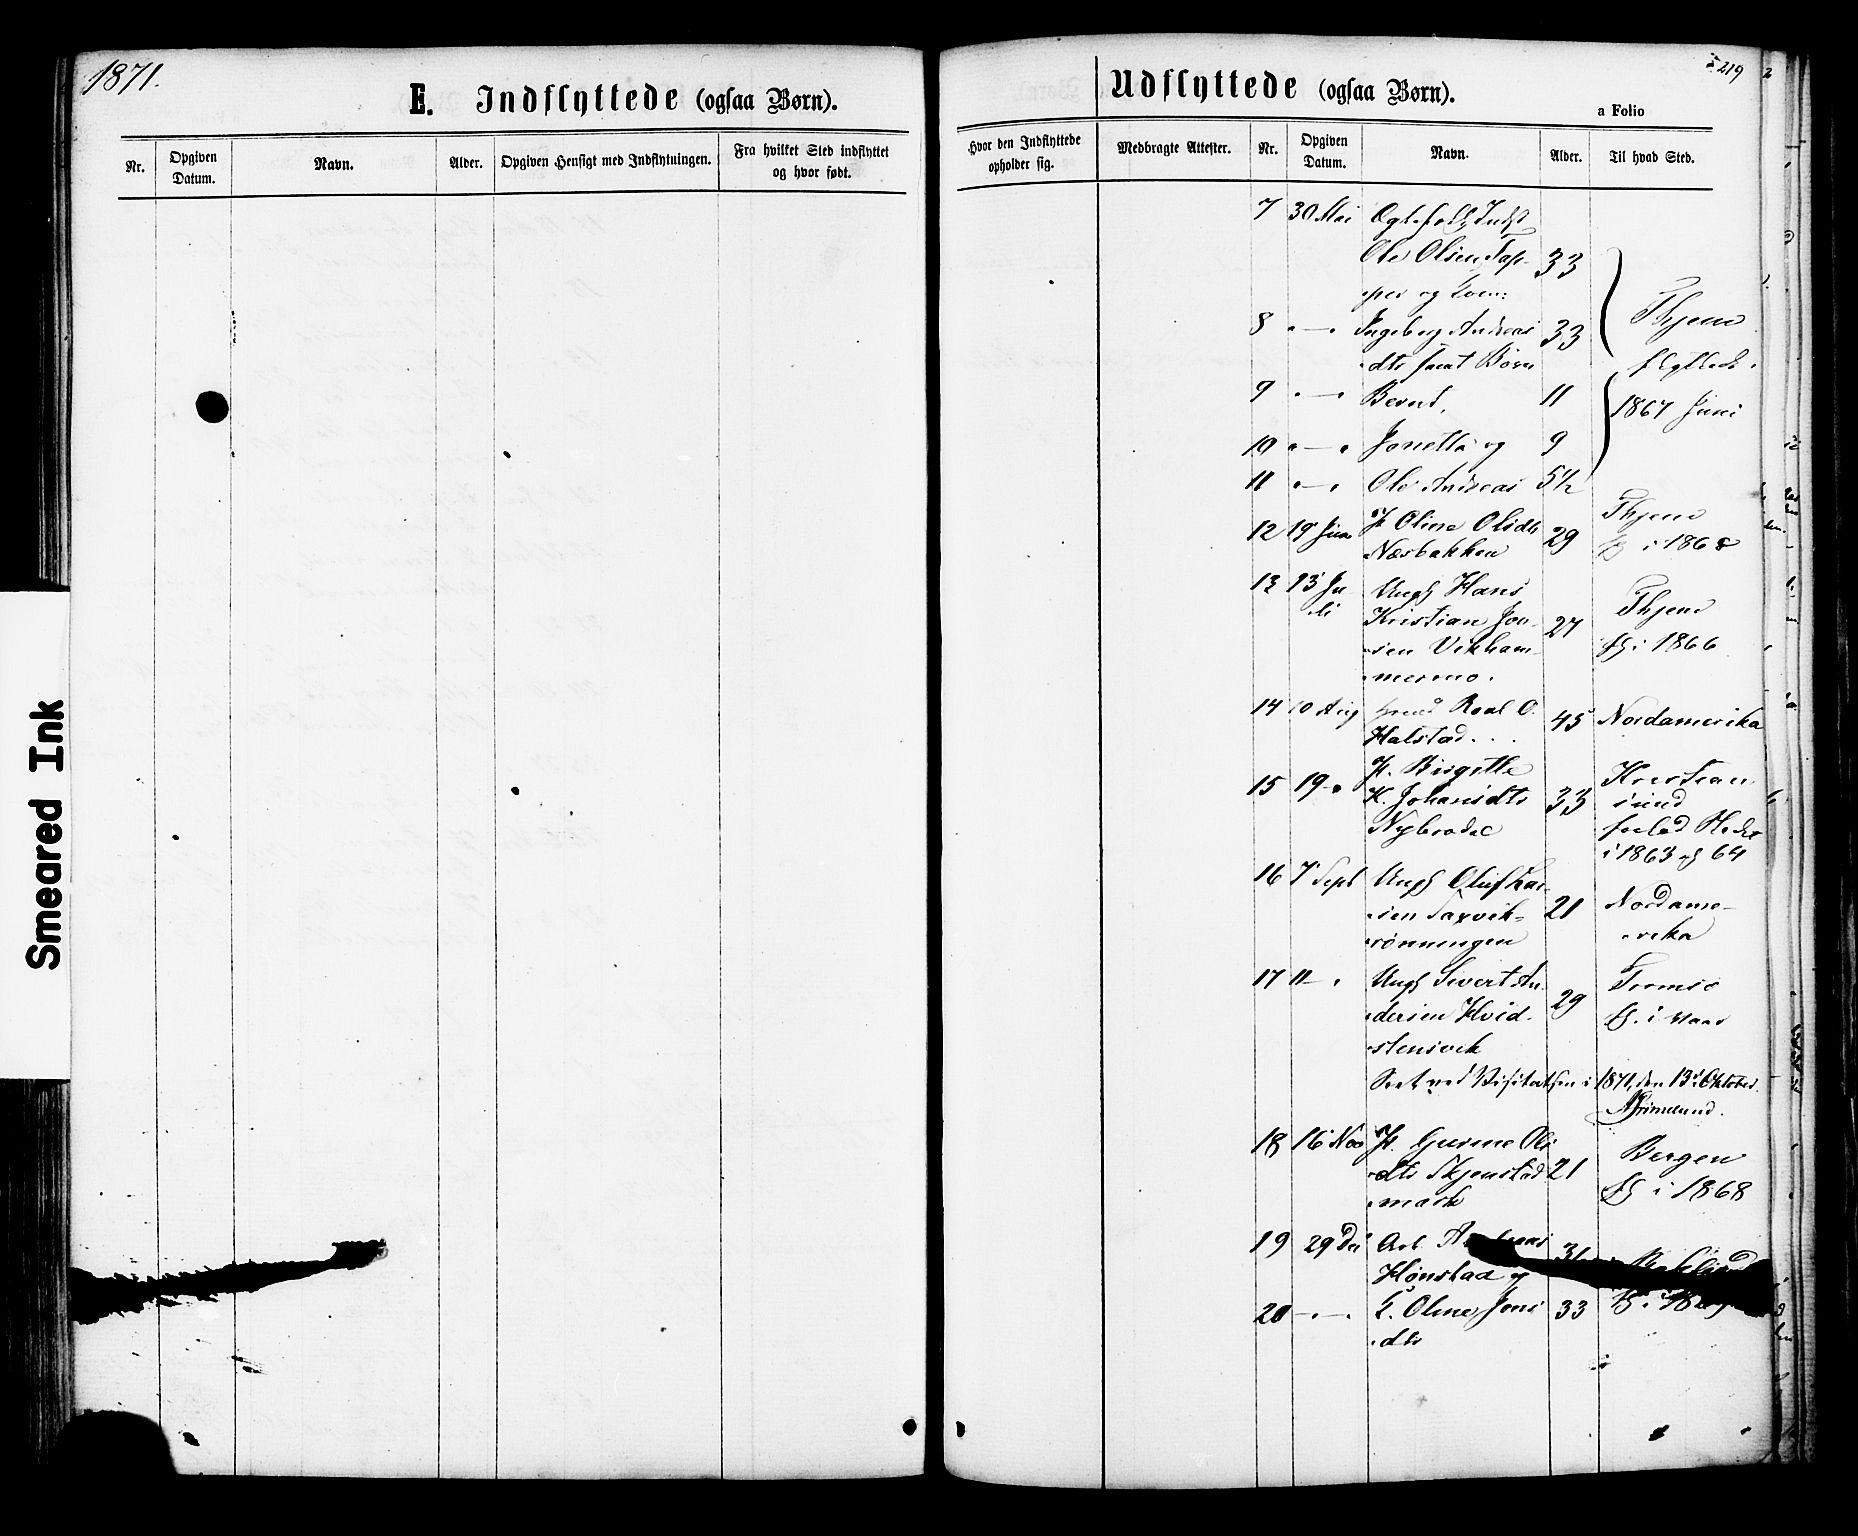 1871.
E. Indflyttede (ogsaa Børn).
Nr. Opgiven Datum. Navn. Alder. Opgiven Hensigt med Indflytningen. Fra hvilket Sted indflyttet og hvor født.
Smeared Ink
219
Udflyttede (ogsaa Børn).
a Folio
Hvor den Indflyttede opholder sig. Medbragte Attester. Nr. Opgiven Datum. Navn. Alder. Til hvad Sted.
7 30 Mai
Ole Olsen Tap- 33
per og
8 Ingeborg Andreas 33 Thjem
dtr samt Børn flyttede
9 Bernt, 11 1867 Juni
10 Jonetta og 9
11 Ole Andreas 5½
12 19 Juni P. Oline Olsdtr 29 Thjem
Næsbakken i 1868
13 13 Ju Ungk Hans
li Kristian Jon- 27 Thjem
sen Vikham- fl. i 1866
mermo.
14 10 Aug Roal O. 45 Nordamerika
Halstad
15 19 P. Birgitte 33 Kristian
K. Johansdtr sund
i 1863 og 64
16 7 Sept Ungk Oluf Lar- 21 Nordame-
sen Saxvik- rika
rønningen
17 11 Ungk Sivert An- 29 Tromsø
dersen Hvid- fl. i Mars
stensvik
Seet ved Visitatsen i 1871, den 13de Oktober.
Grimelund.
18 16 Nov P. Gurine Ols 21 Bergen
dtr Skjenstad fl i 1868
mark
19 29 De 31
Hønstad og
20 K. Oline Jons 33
dtr